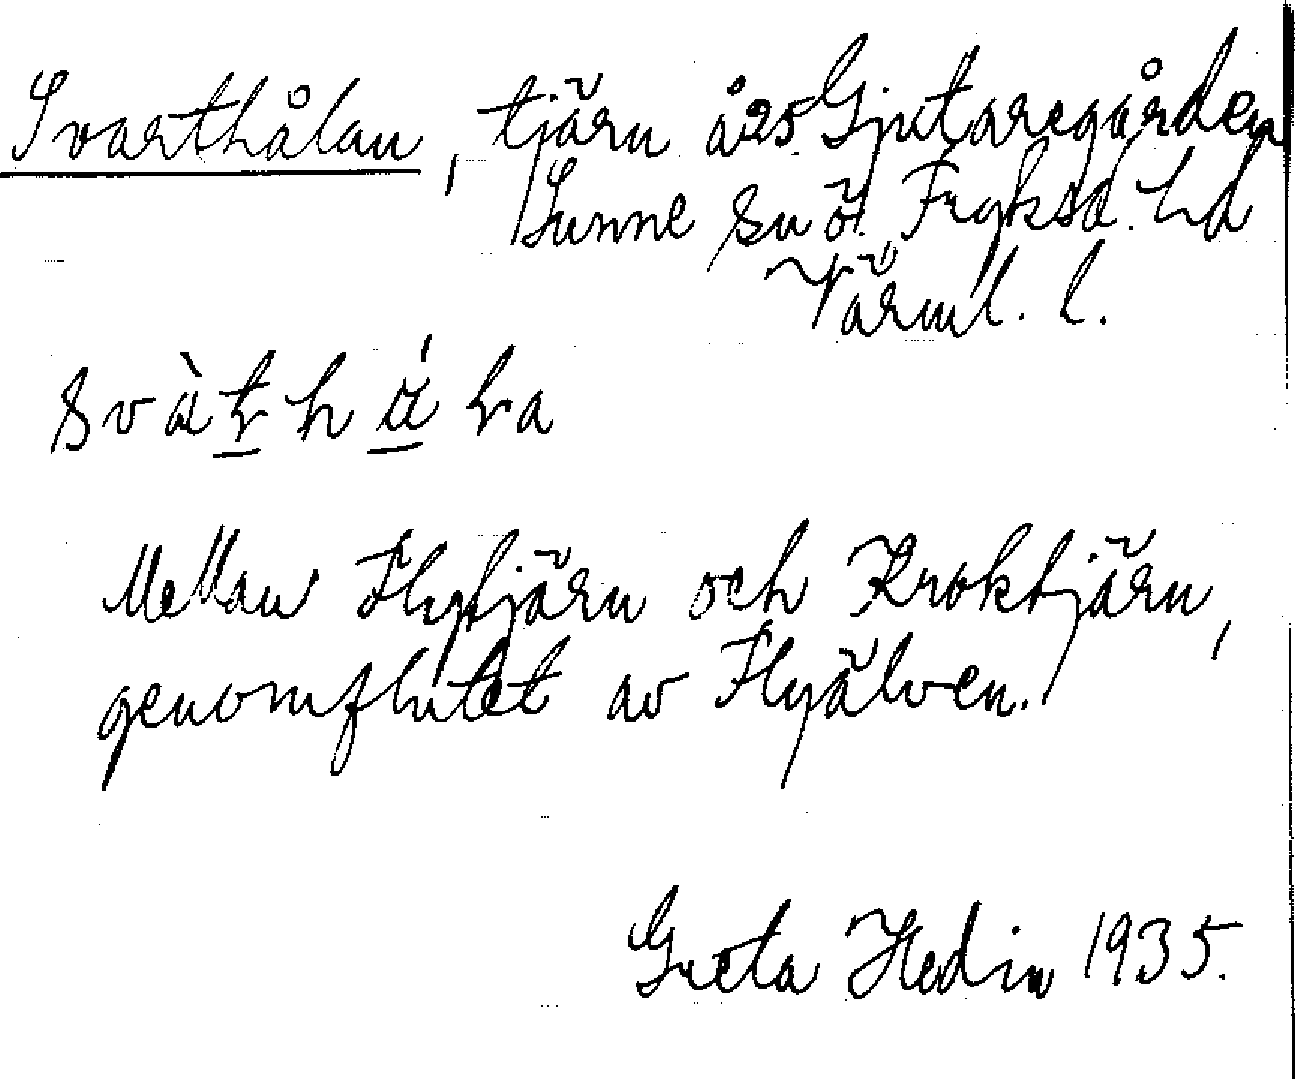 Svarthålan, tjärn å 25 Gjutaregården
Sunne sn ö. Fryksd. hd
Värml. l.
Mellan Flytjärn och Kroktjärn,
genomflutet av Flyälven.
Greta Hedin 1935.